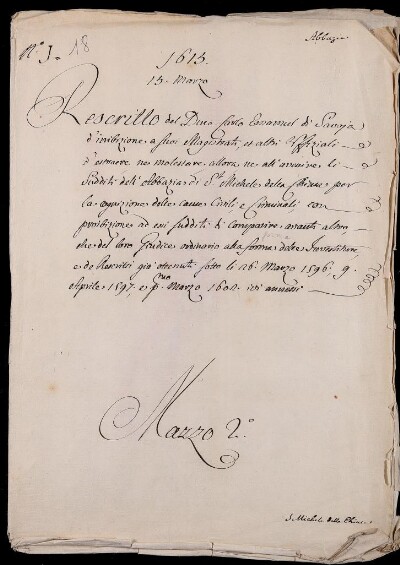 Abbazie
N.° 1. 18
1615.
15. Marzo
Rescritto del Duca Carlo Emanuel di Savoja
d'inibizione a suoi Magistrati, et altri Uffiziali
d'estraere, ne molestare, allora, ne all' avvenire li
Sudditi dell' Abbazia di S.t Michele della Chiusa per
la cognizione delle cause Civili e Criminali con
proibizione ad essi sudditi di comparire avanti altro,
che del loro Giudice ordinario alla forma delle Investiture,
e de Rescritti già ottenuti sotto li 26. Marzo 1596., 9.
Aprile 1597, e p.mo Marzo 1602. ivi annessi
Mazzo 2.°
S. Michele della Chiusa